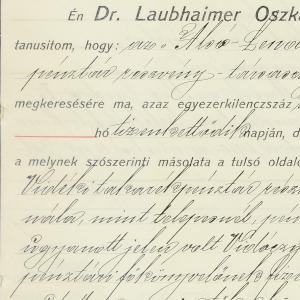 Én Dr. Laubhaimer Oszká
tanusitom, hogy: az "Alsó-Lendva
pénztár részvény-társaság
megkeresésére ma, azaz egyezerkilenczszáz
hó tizenkettődik napján, d
a melynek szószerinti másolata a tulsó oldalo
Vidéki takarékpénztár rész
nála, mint telepesnél, pén
ugyanott jelen volt
pénztári főkönyvelőnek